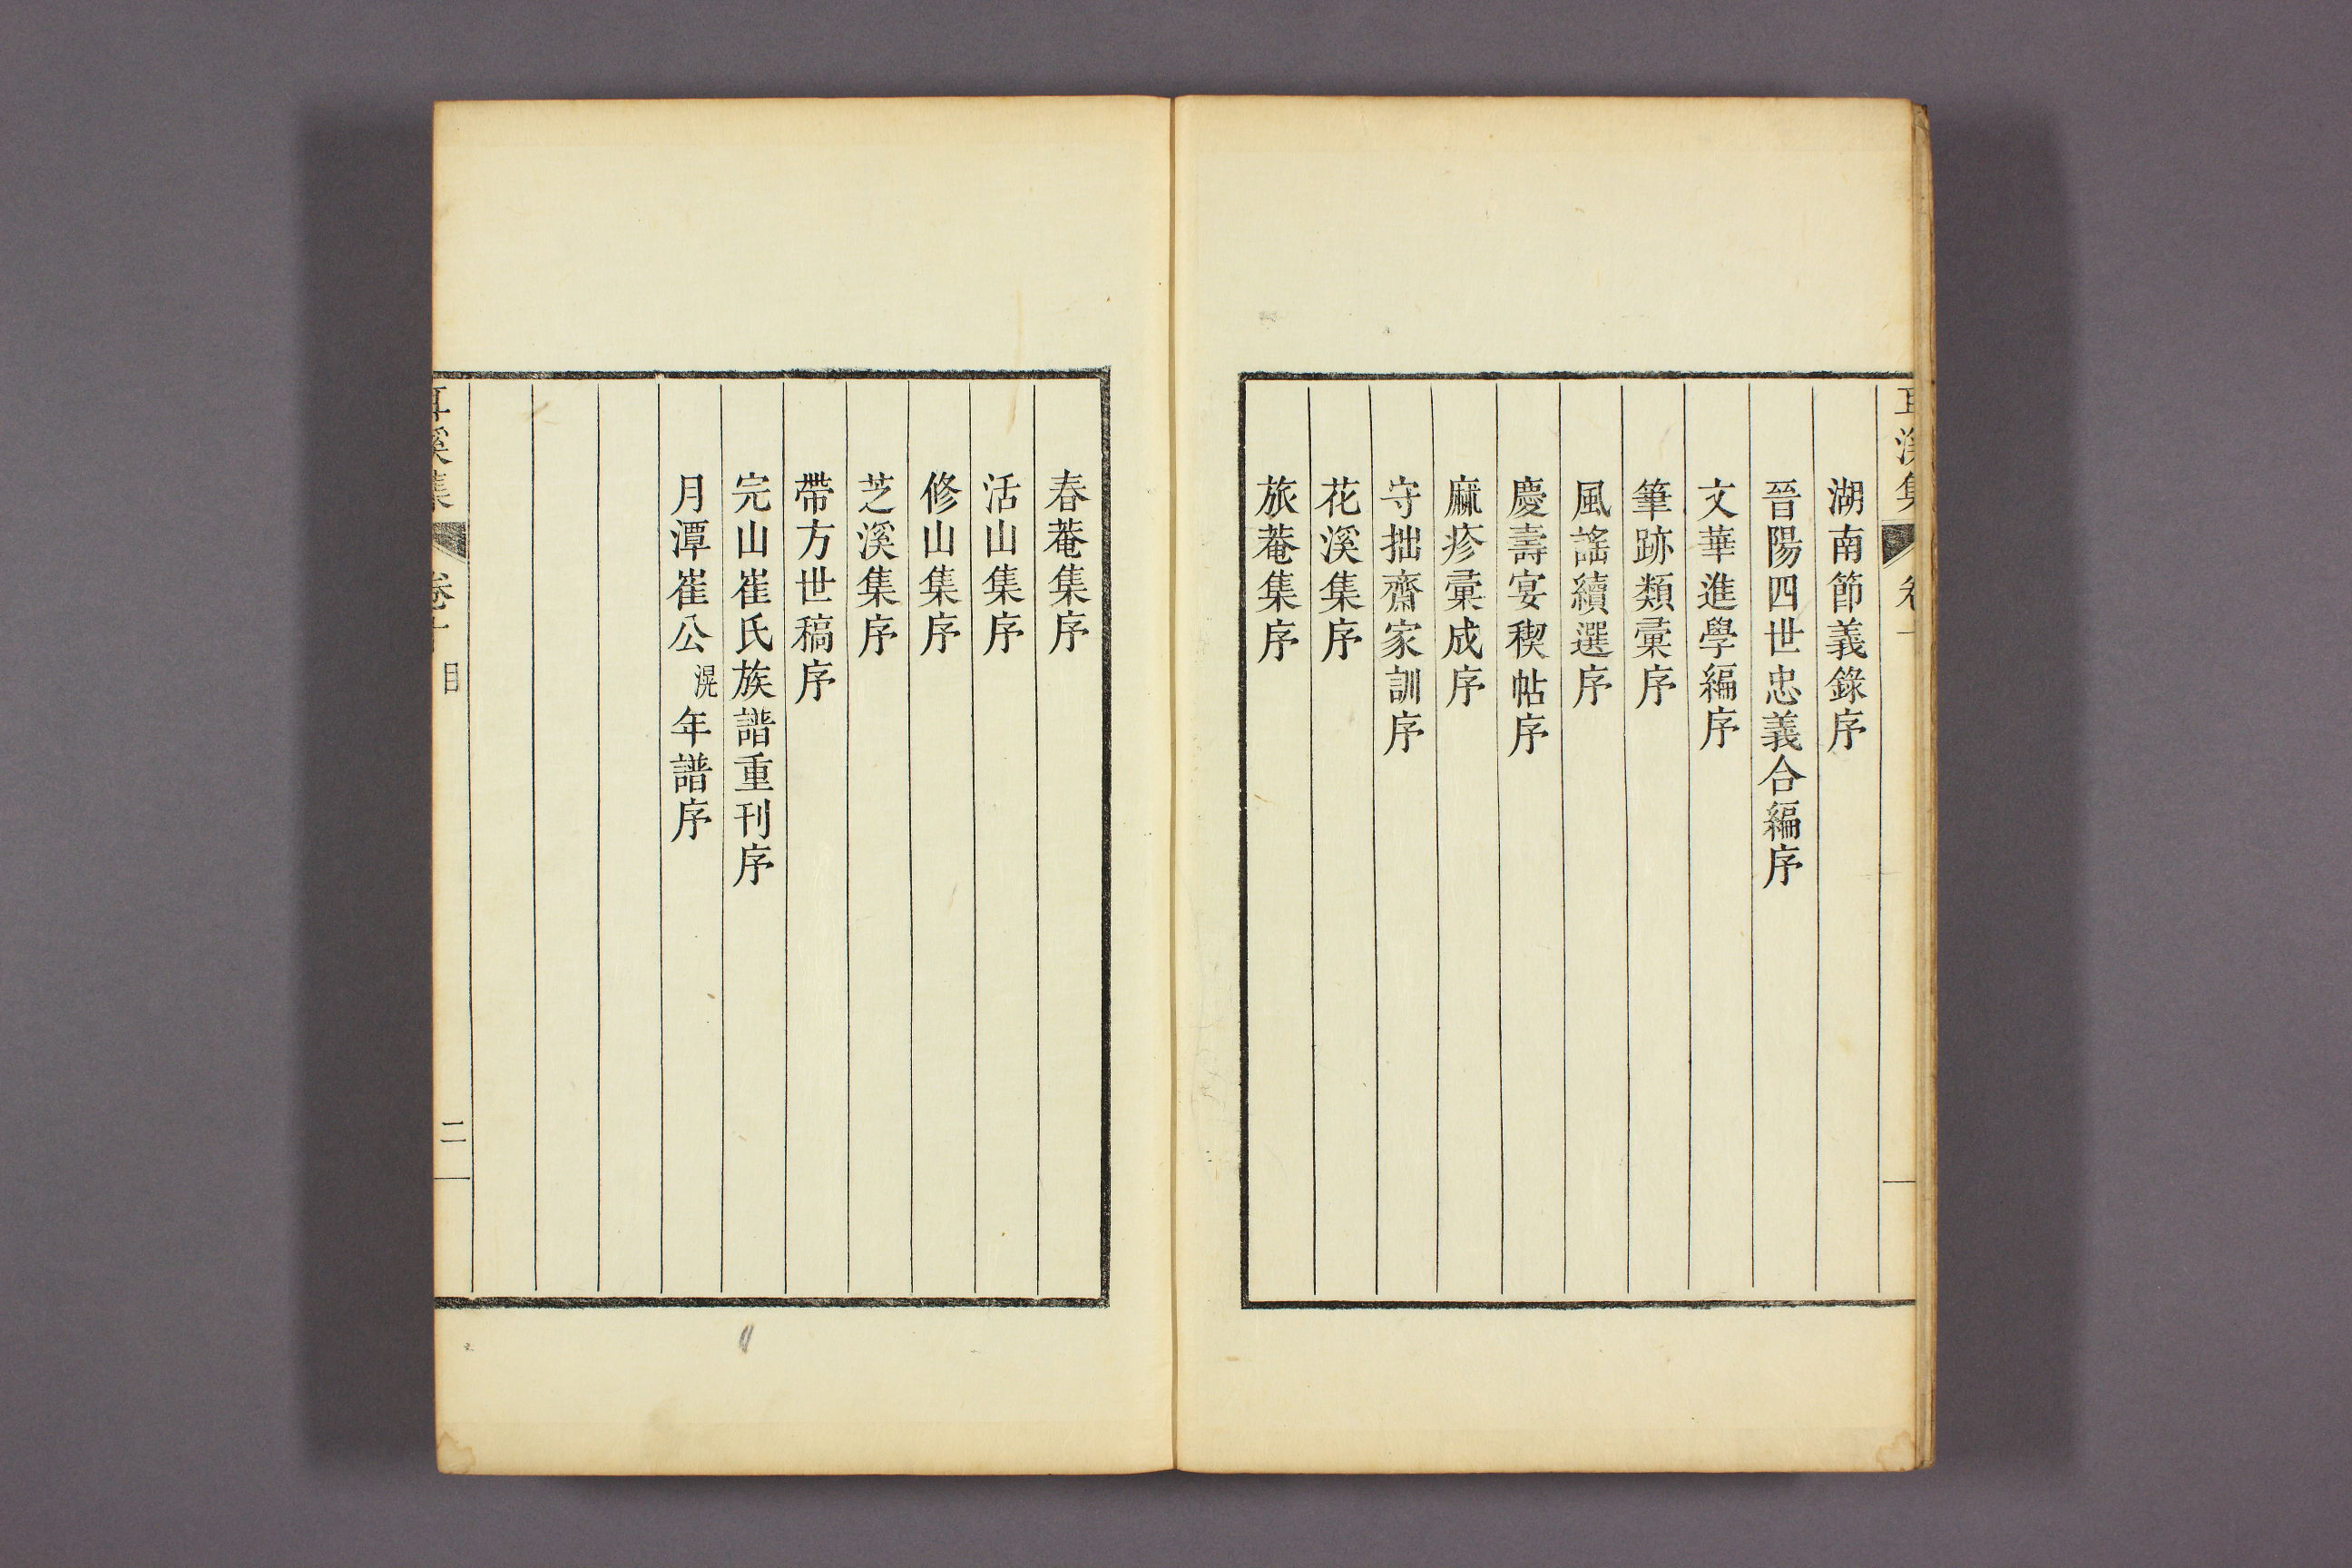 湖南節義錄序
晉陽四世忠義合編序
文華進學編序
筆跡類彙序
風謠續選序
慶壽宴稧帖序
麻疹彙成序
守拙齋家訓序
花溪集序
旅菴集序
春菴集序
活山集序
修山集序
芝溪集序
帶方世稿序
完山崔氏族譜重刊序
月潭崔公滉年譜序
耳溪集
目
二